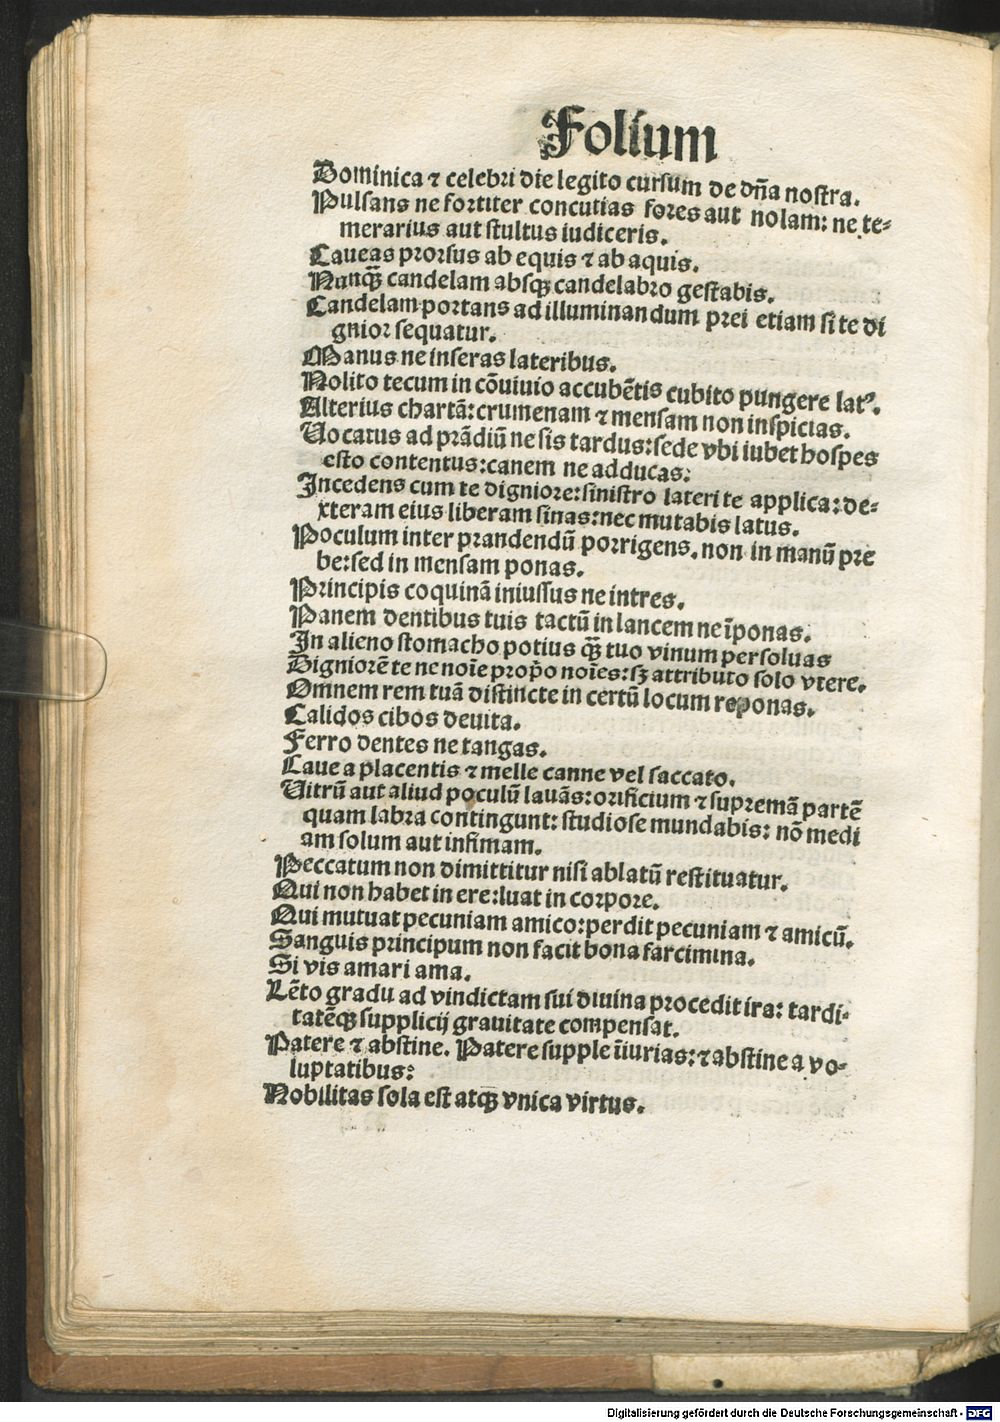 Folium
Dominica ⁊ celebri die legito cursum de dña nostra.
Pulsans ne fortiter concutias fores aut nolam: ne te⸗
merarius aut stultus iudiceris.
Caueas prorsus ab equis ⁊ ab aquis.
Nunqꝫ candelam absqꝫ candelabro gestabis.
Candelam portans ad illuminandum prei etiam si te di
gnior sequatur.
Manus ne inseras lateribus.
Nolito tecum in cōuiuio accubētis cubito pungere latꝰ.
Alterius chartā: crumenam ⁊ mensam non inspicias.
Uocatus ad prādiū ne sis tardus: sede vbi iubet hospes
esto contentus: canem ne adducas:
Incedens cum te digniore: sinistro lateri te applica: de⸗
xteram eius liberam sinas: nec mutabis latus.
Poculum inter prandendū porrigens. non in manū pre
be: sed in mensam ponas.
Principis coquinā iniussus ne intres.
Panem dentibus tuis tactū in lancem ne īponas.
In alieno stomacho potius qꝫ tuo vinum persoluas
Digniorē te ne noīe prop̄o noīes: sꝫ attributo solo vtere.
Omnem rem tuā distincte in certū locum reponas.
Calidos cibos deuita.
Ferro dentes ne tangas.
Caue a placentis ⁊ melle canne vel saccato.
Uitrū aut aliud poculū lauās: orificium ⁊ supremā partē
quam labra contingunt: studiose mundabis: nō medi
am solum aut infimam.
Peccatum non dimittitur nisi ablatū restituatur.
Qui non habet in ere: luat in corpore.
Qui mutuat pecuniam amico: perdit pecuniam ⁊ amicū.
Sanguis principum non facit bona farcimina.
Si vis amari ama.
Lēto gradu ad vindictam sui diuina procedit ira: tardi⸗
tatēqꝫ supplicij grauitate compensat.
Patere ⁊ abstine. Patere supple īiurias: ⁊ abstine a vo⸗
luptatibus:
Nobilitas sola est atqꝫ vnica virtus.
Digitalisierung gefördert durch die Deutsche Forschungsgemeinschaft - DFG